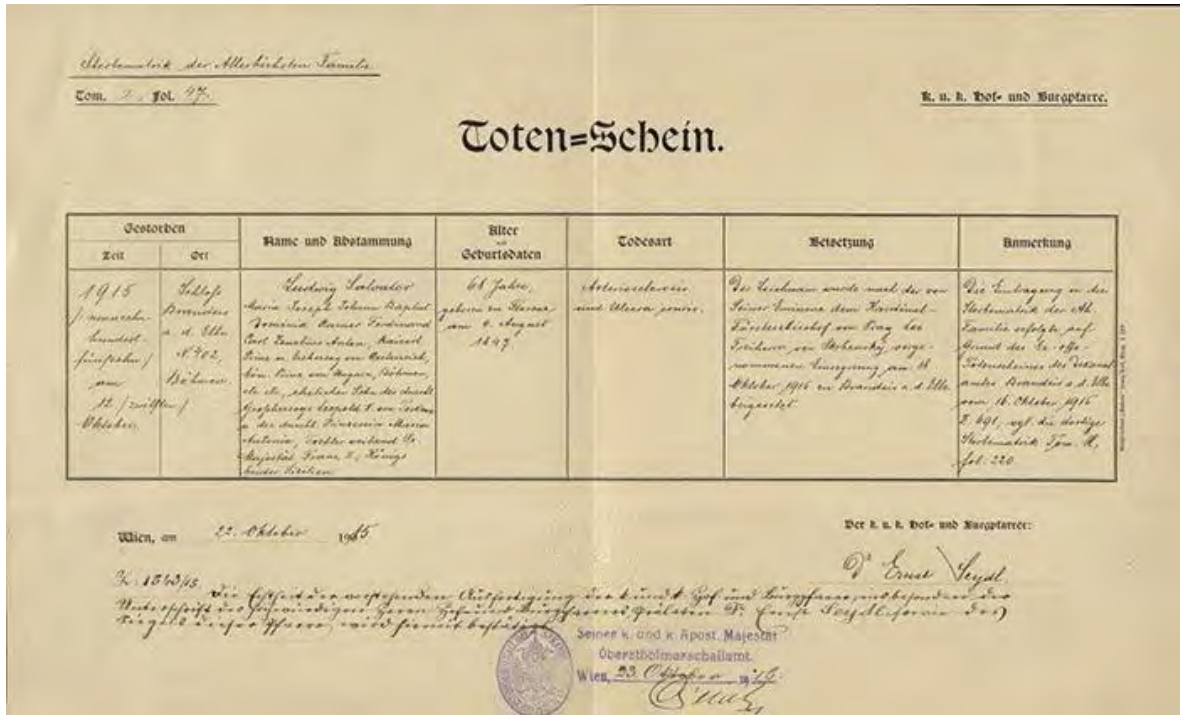 Sterbematrik der Allerhöchsten Familie
Tom. 2, Fol. 47.
k. u. k. Hof- und Burgpfarre.
Toten=Schein.
Gestorben
Zeit
Ort
Name und Abstammung
Alter
und
Geburtsdaten
Todesart
Beisetzung
Anmerkung
1915
/ neunzehn-
hundert-
fünfzehn /
am
12 / zwölften /
Oktober.
Schloß
Brandeis
a. d. Elbe
N° 402,
Böhmen.
Ludwig Salvator
Maria Joseph Johann Baptist
Dominik Rainer Ferdinand
Carl Zenobius Anton, Kaiserl.
Prinz u. Erzherzog von Oesterreich,
kön. Prinz von Ungarn, Böhmen,
etc etc, ehelicher Sohn des durchl.
Großherzogs Leopold II. von Toskana
u. der durchl. Prinzessin Maria
Antonia, Tochter weiland Sr.
Majestät Franz I., Königs
beider Sicilien
68 Jahre,
geboren in Florenz
am 4. August
1847
Arteriosclerosis
und Ulcera
Der Leichnam wurde nach der von
Seiner Eminenz dem Kardinal-
Fürsterzbischof von Prag Leo
Freiherrn von Skrbensky vorge-
nommenen Einsegnung am 18
Oktober 1915 in Brandeis a. d. Elbe
beigesetzt.
Die Eintragung in die
Sterbematrik der Ah.
Familie erfolgte auf
Grund des
Totenscheines des Dekanal-
amtes Brandeis a. d. Elbe
vom 16. Oktober 1915
Z. 691, vgl. die dortige
Sterbematrik Tom.
fol. 220
Wien, am 22. Oktober 1915
Der k. u. k. Hof- und Burgpfarrer:
Dr Ernst Seydl
Die Echtheit der vorstehenden Ausfertigung der k. und k. Hof und Burgpfarre, insbesondere der
Unterschrift des hochwürdigen Herrn Hof und Burgpfarrers Prälaten Dr. Ernst Seydl sowie des
Siegels dieser Pfarre, wird hiemit bestätigt.
Seiner k. und k. Apost. Majestät
Obersthofmarschallamt.
Wien, 23. Oktober